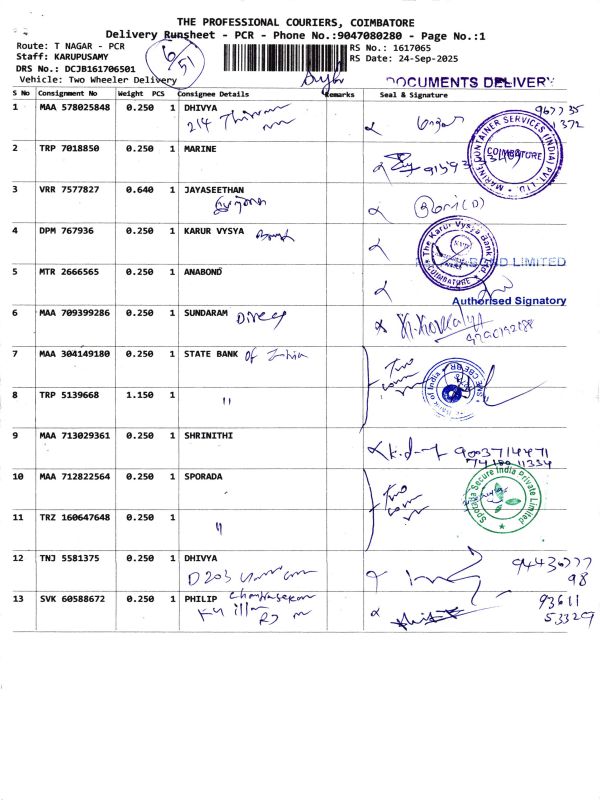 THE PROFESSIONAL COURIERS, COIMBATORE
Delivery Runsheet - PCR - Phone No.:9047080280 - Page No.:1
Route: T NAGAR - PCR
Staff: KARUPUSAMY
DRS No.: DCJB161706501
Vehicle: Two Wheeler Delivery
6/51
RS No.: 1617065
RS Date: 24-Sep-2025
DOCUMENTS DELIVERY
S No Consignment No Weight PCS Consignee Details Remarks Seal & Signature
1 MAA 578025848 0.250 1 DHIVYA
214
967735
1372
2 TRP 7018850 0.250 1 MARINE
MARINE CONTAINER SERVICES (INDIA) PVT. LTD.
COIMBATORE
3 VRR 7577827 0.640 1 JAYASEETHAN
4 DPM 767936 0.250 1 KARUR VYSYA Bank
The Karur Vysya Bank Ltd.
COIMBATORE
5 MTR 2666565 0.250 1 ANABOND
BOND LIMITED
Authorised Signatory
6 MAA 709399286 0.250 1 SUNDARAM Direct
7 MAA 304149180 0.250 1 STATE BANK of India
Two
8 TRP 5139668 1.150 1 "
9 MAA 713029361 0.250 1 SHRINITHI
9003714471
10 MAA 712822564 0.250 1 SPORADA
Two
Sporada Secure India Private Limited
11 TRZ 160647648 0.250 1 "
12 TNJ 5581375 0.250 1 DHIVYA
D203
98
13 SVK 60588672 0.250 1 PHILIP Chandrasekaran
93611
53329